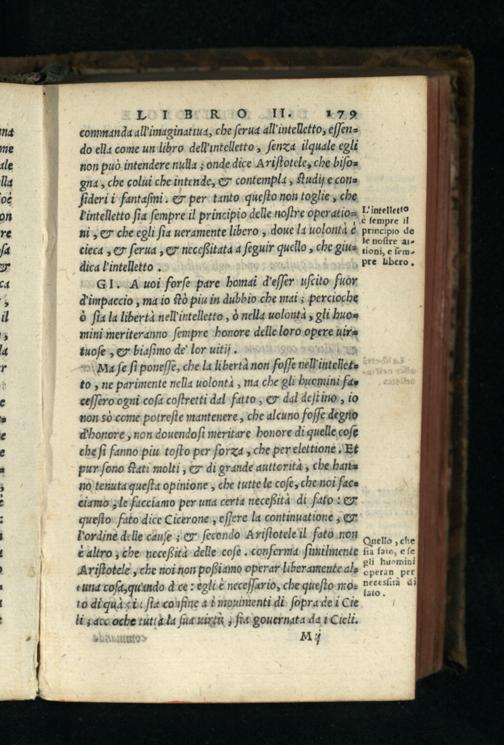 LIBRO II. 179
commanda all'imaginatiua, che serua all'intelletto, essen-
do ella come un libro dell'intelletto, senza ilquale egli
non può intendere nulla; onde dice Aristotele, che biso-
gna, che colui che intende, & contempla, studij e con-
sideri i fantasmi. & per tanto questo non toglie, che
l'intelletto sia sempre il principio delle nostre operatio-
ni, & che egli sia ueramente libero, doue la uolontà è
cieca, & serua, & neceßitata a seguir quello, che giu-
dica l'intelletto.
L'intelletto
è sempre il
principio de
le nostre at-
tioni, e sem-
pre libero.
GI. A uoi forse pare homai d'esser uscito fuor
d'impaccio, ma io stò piu in dubbio che mai; percioche
ò sia la libertà nell'intelletto, ò nella uolontà, gli huo-
mini meriteranno sempre honore delle loro opere uir-
tuose, & biasimo de' lor uitij.
Ma se si ponesse, che la libertà non fosse nell'intellet-
to, ne parimente nella uolontà, ma che gli huomini fa-
cessero ogni cosa costretti dal fatto, & dal destino, io
non sò come potreste mantenere, che alcuno fosse degno
d'honore, non douendosi meritare honore di quelle cose
che si fanno piu tosto per forza, che per elettione. Et
pur sono stati molti, & di grande auttorità, che han-
no tenuta questa opinione, che tutte le cose, che noi fac-
ciamo, le facciamo per una certa neceßità di fato: &
questo fato dice Cicerone, essere la continuatione, &
l'ordine delle cause; & secondo Aristotele il fato non
è altro, che neceßità delle cose. conferma similmente
Aristotele, che noi non poßiamo operar liberamente al-
cuna cosa, quando dice: egli è necessario, che questo mo-
to di quà giu sia confine a i mouimenti di sopra de i Cie
li; accioche tutta la sua uirtù, sia gouernata da i Cieli.
Quello, che
sia fato, e se
gli huomini
operan per
necessità di
fato.
M ij